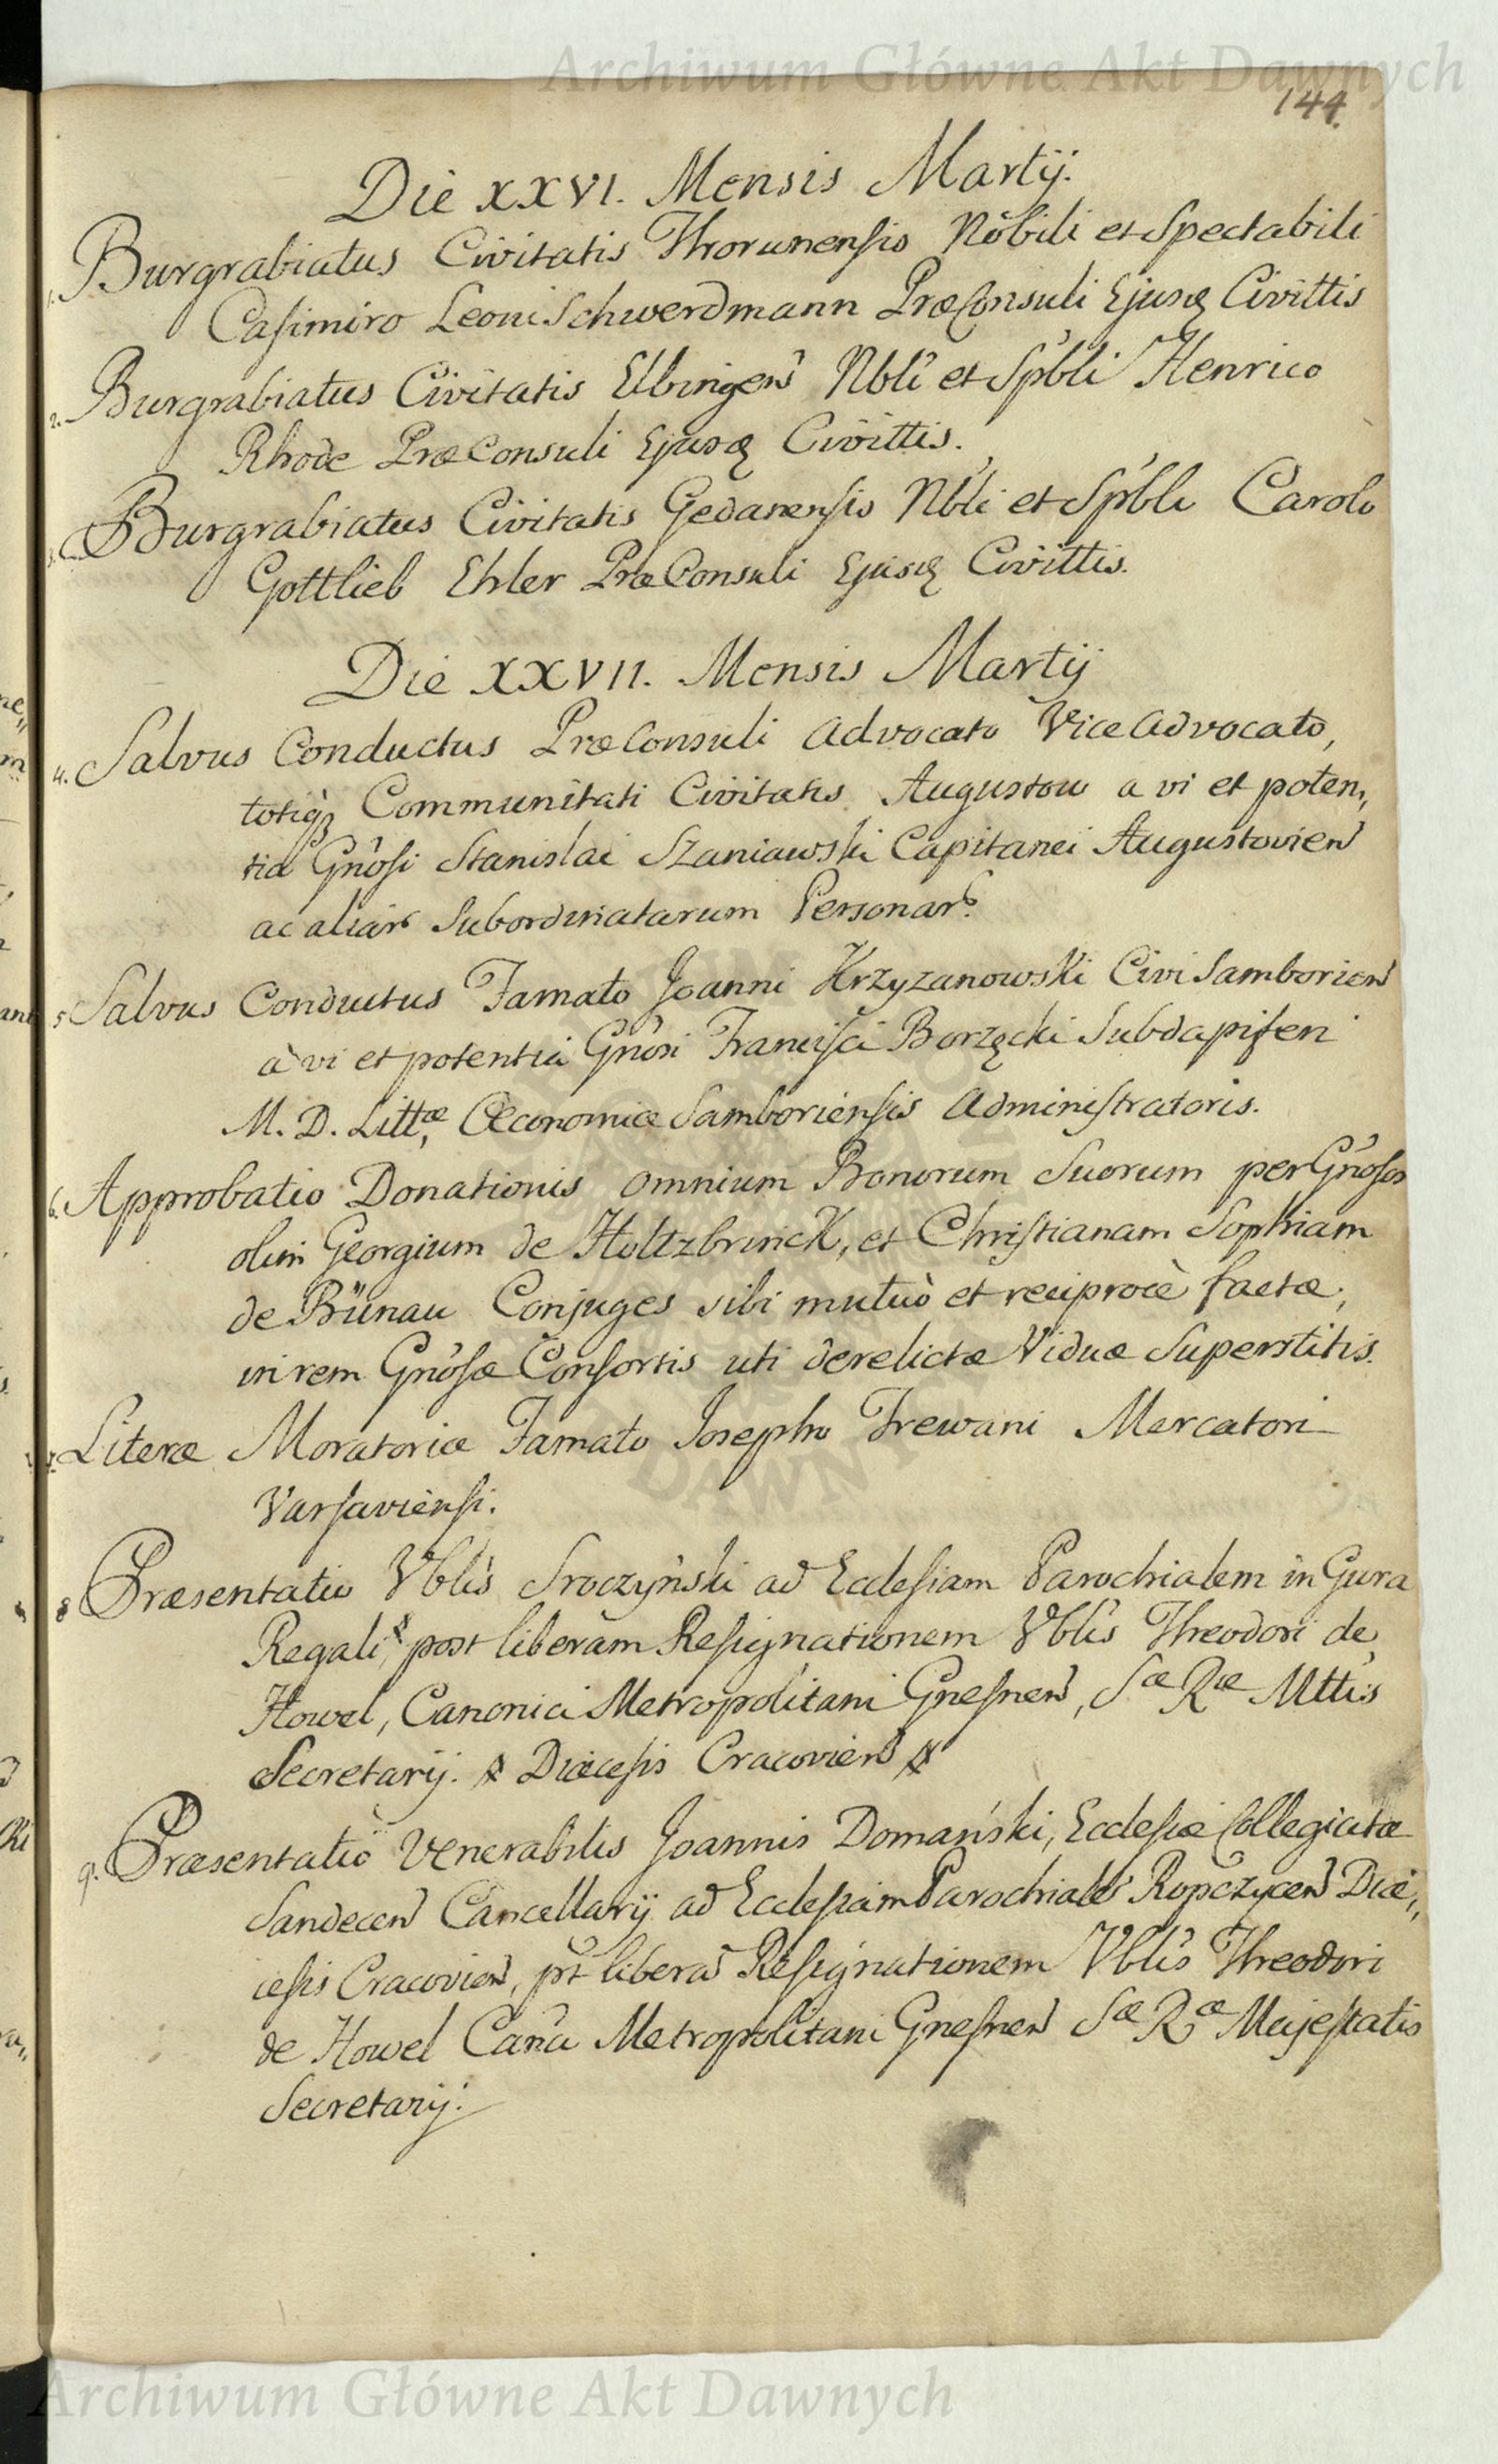 Archiwum Główne Akt Dawnych
144.
Die XXVI. Mensis Martij.
1. Burgrabiatus Civitatis Thorunensis Nobili et Spectabili
Casimiro Leoni Schwerdmann PræConsuli Ejusq Civittis
2. Burgrabiatus Civitatis Elbingen Nbli et Spbli Henrico
Rhode PræConsuli Ejusq Civittis.
3. Burgrabiatus Civitatis Gedanensis Nbli et Spbli Carolo
Gottlieb Ehler PræConsuli Ejusq Civittis.
Die XXVII. Mensis Martij
4. Salvus Conductus PræConsuli Advocato Vice Advocato,
totiq Communitati Civitatis Augustow a vi et poten,,
tia Gnosi Stanislai Szaniawski Capitanei Augustovien
ac aliar Subordinatarum Personar.
5 Salvus Conductus Famato Joanni Krzyzanowski Civi Samborien
à vi et potentia Gnosi Francisci Borzęcki Subdapiferi
M. D. Littæ, Œconomiæ Samboriensis Administratoris.
6. Approbatio Donationis omnium Bonorum Suorum per Gnosos
olim Georgium de Holtzbrinck, et Christianam Sophiam
de Bünau Conjuges sibi mutuò et reciprocè factæ,
in rem Gnosæ Consortis uti derelictæ Viduæ Superstitis.
7. Literæ Moratoriæ Famato Josepho Trewani Mercatori
Varsaviensi.
8 Præsentatio Vblis Sroczyński ad Ecclesiam Parochialem in Gura
Regali, post liberam Resignationem Vblis Theodori de
Howel, Canonici Metropolitani Gnesnen, Sæ Ræ Mttis
Secretarij. Diæcesis Cracovien
9. Præsentatio Venerabilis Joannis Domański, Ecclesiæ Collegiatæ
Sandecen Cancellarij ad Ecclesiam Parochiale Ropczycen Diæ,,
cesis Cracovien, pt libera Resignationem Vblis Theodori
de Howel Cana Metropolitani Gnesnen Sæ Ræ Majestatis
Secretarij.
Archiwum Główne Akt Dawnych